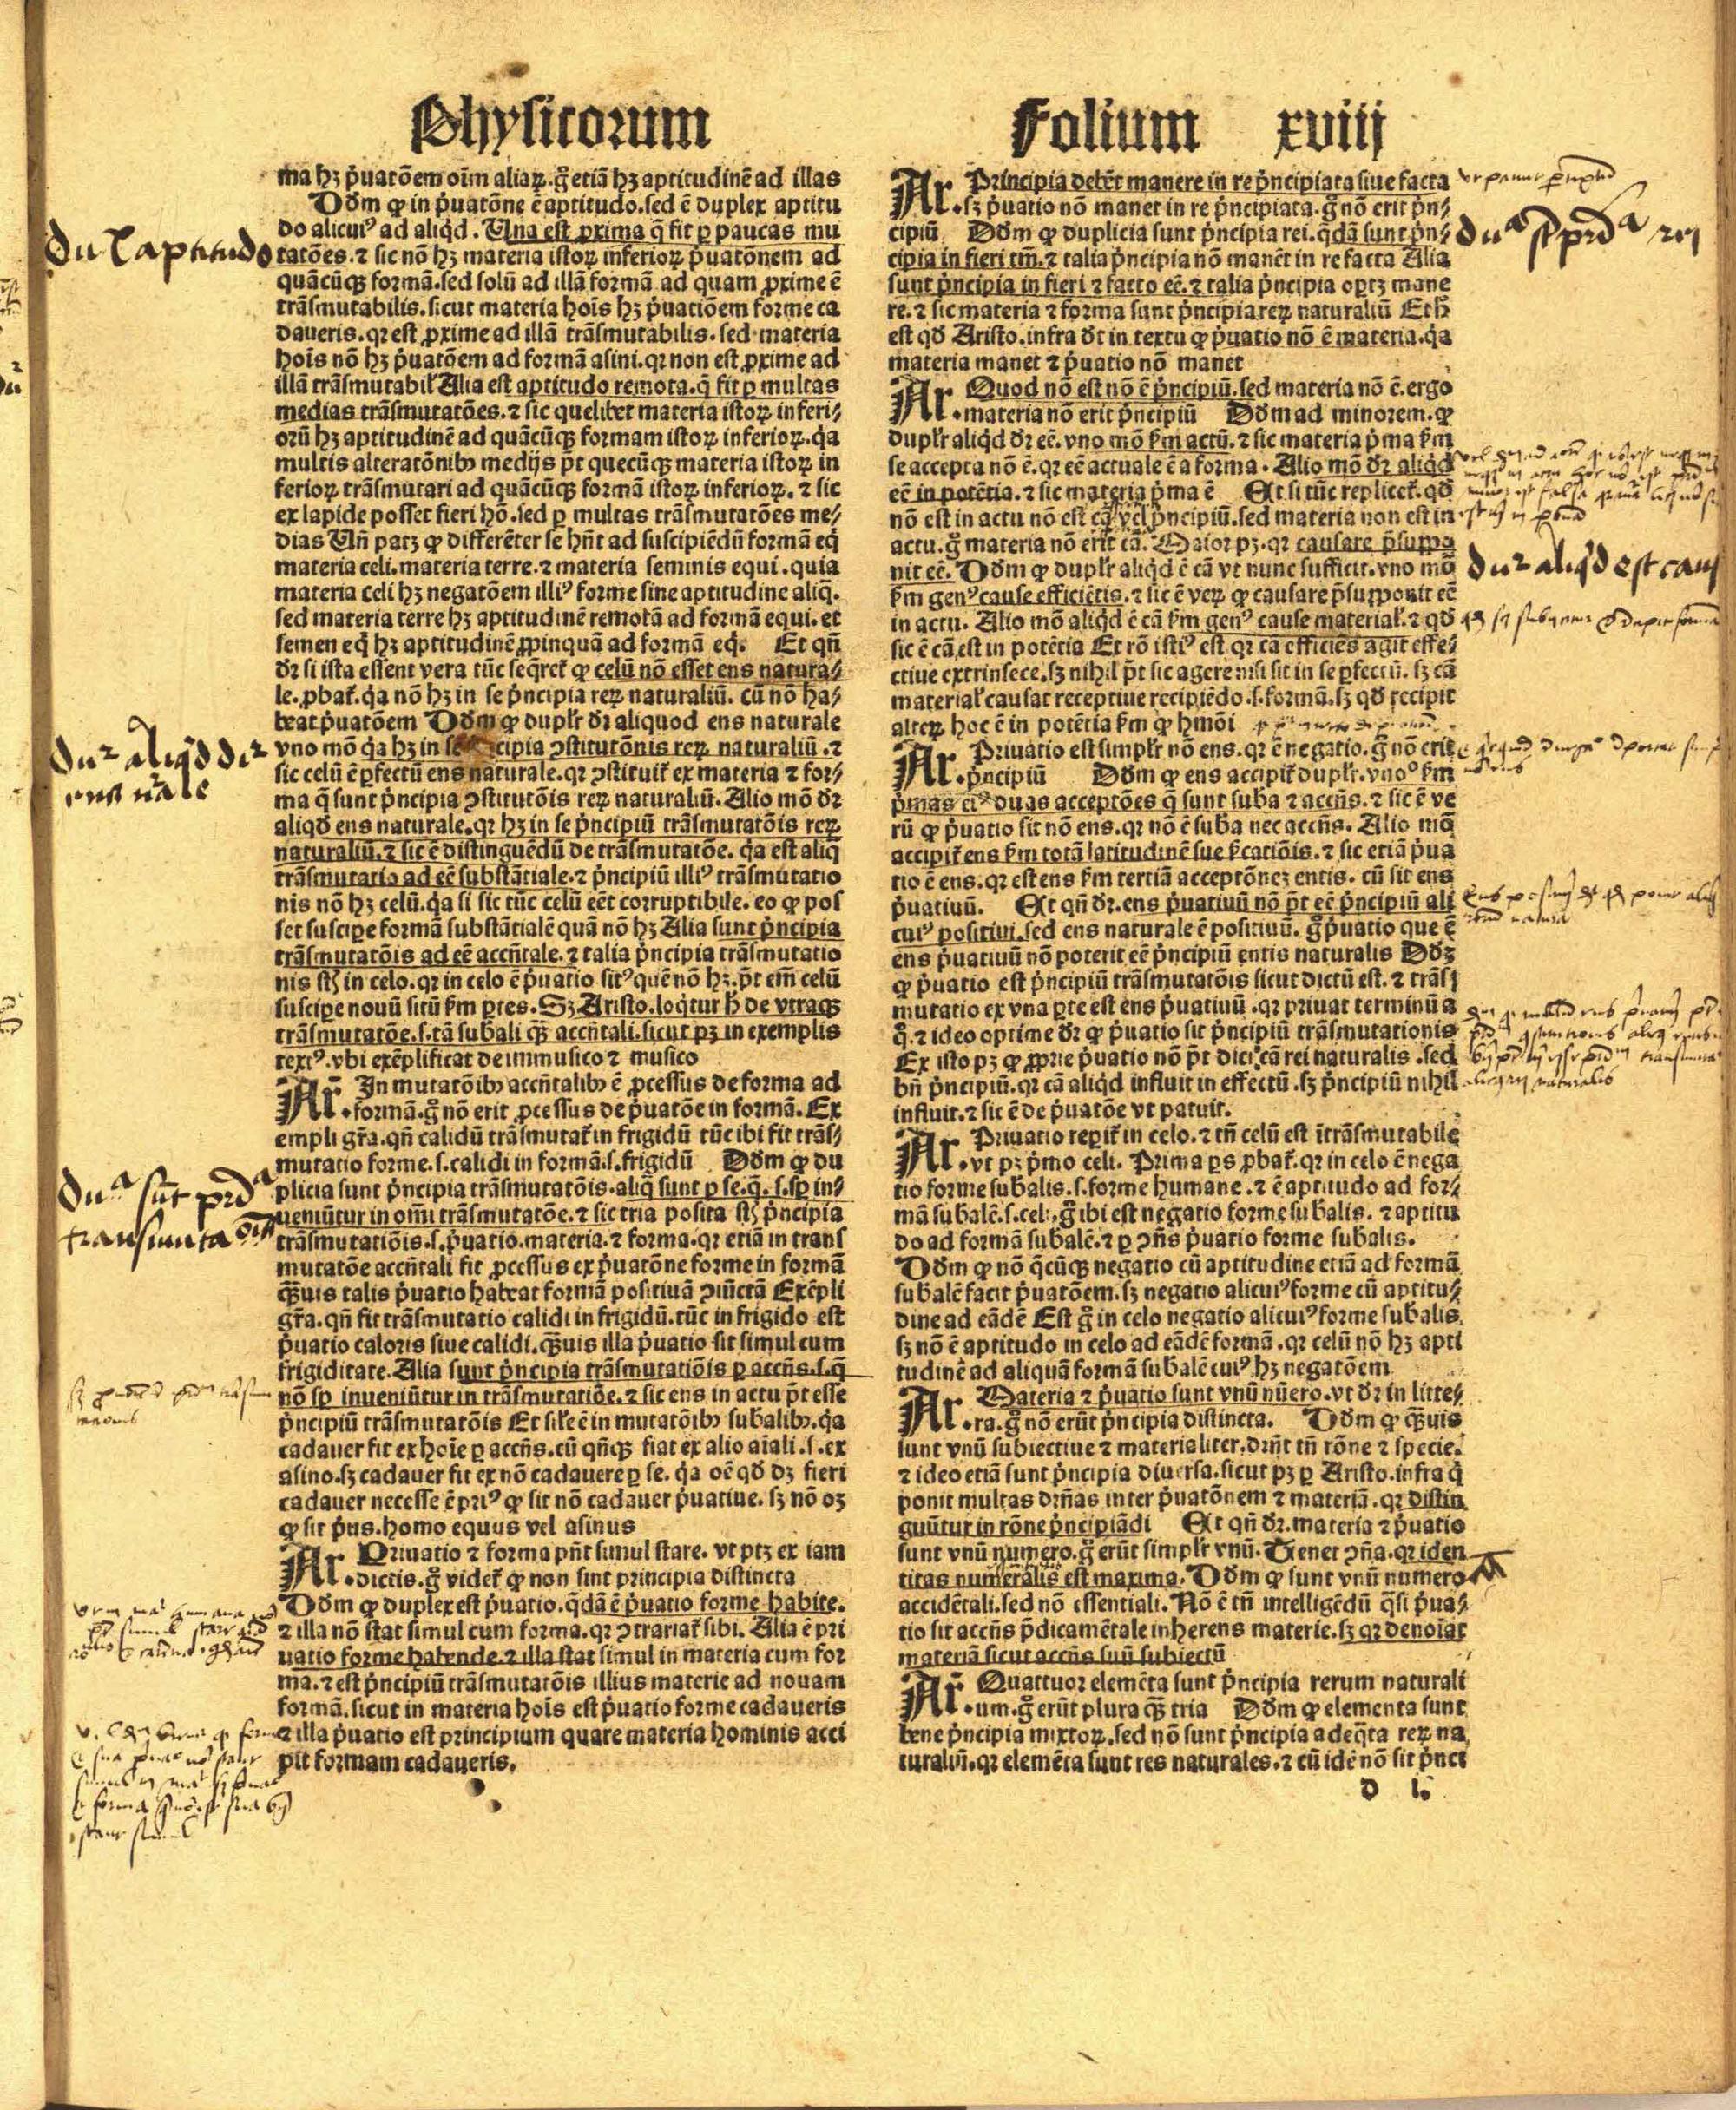 Physicorum
Folium xviij
ma hꝫ p̄uatōem oīm aliaꝝ.g̊ etiā hꝫ aptitudinē ad illas
Dōm ꝙ in p̄uatōne ē aptitudo.sed ē duplex aptitu
do alicuiꝰ ad aliqd̄. Una est ꝓxima q̄ fit ꝑ paucas mu
tatōes.⁊ sic nō hꝫ materia istoꝝ inferioꝝ p̄uatōnem ad
quācūqꝫ formā.sed solū ad illā formā ad quam ꝓxime ē
trāsmutabilis.sicut materia hoīs hꝫ p̄uatiōem forme ca
daueris.qꝛ est ꝓxime ad illā trāsmutabilis.sed materia
hoīs nō hꝫ p̄uatōem ad formā asini.qꝛ non est ꝓxime ad
illā trāsmutabil̛ Alia est aptitudo remota.q̄ fit ꝑ multas
medias trāsmutatōes.⁊ sic quelibet materia istoꝝ inferi⸗
orū hꝫ aptitudinē ad quācūqꝫ formam istoꝝ inferioꝝ.q̇a
multis alteratōnibꝰ medijs p̄t quecūqꝫ materia istoꝝ in
ferioꝝ trāsmutari ad quācūqꝫ formā istoꝝ inferioꝝ.⁊ sic
ex lapide posset fieri hō.sed ꝑ multas trāsmutatōes me⸗
dias Uñ patꝫ ꝙ differēter se hn̄t ad suscipiēdū formā eq̇
materia celi.materia terre.⁊ materia seminis equi.quia
materia celi hꝫ negatōem illiꝰ forme sine aptitudine aliq̄.
sed materia terre hꝫ aptitudinē remotā ad formā equi.et
semen eq̇ hꝫ aptitudinē ꝓpinquā ad formā eq̇. Et qn̄
dꝛ si ista essent vera tūc seq̄ret̛ ꝙ celū nō esset ens natura⸗
le.ꝓbat̛.q̇a nō hꝫ in se p̄ncipia reꝝ naturaliū. cū nō ha⸗
beat p̄uatōem Dōm ꝙ dupl̛r dꝛ aliquod ens naturale
vno mō q̇a hꝫ in se cipia ꝯstitutōnis reꝝ naturaliū.⁊
sic celū ē ꝑfectū ens naturale.qꝛ ꝯstituit̛ ex materia ⁊ for⸗
ma q̄ sunt p̄ncipia ꝯstitutōis reꝝ naturaliū. Alio mō dꝛ
aliqd̄ ens naturale.qꝛ hꝫ in se p̄ncipiū trāsmutatōis reꝝ
naturaliū.⁊ sic ē distinguēdū de trāsmutatōe. q̇a est aliq̄
trāsmutatio ad eē substātiale.⁊ p̄ncipiū illiꝰ trāsmutatio
nis nō hꝫ celū.q̇a si sic tūc celū eēt corruptibile. eo ꝙ pos
set suscipe formā substātialē quā nō hꝫ Alia sunt p̄ncipia
trāsmutatōis ad eē accn̄tale.⁊ talia p̄ncipia trāsmutatio
nis st̄ in celo.qꝛ in celo ē p̄uatio sitꝰ quē nō hꝫ.p̄t em̄ celū
suscipe nouū sitū ẜm ꝑtes. Sꝫ Aristo.loq̇tur h̄ de vtraqꝫ
trāsmutatōe.s.tā sub̄ali qꝫ accn̄tali.sicut pꝫ in exemplis
textꝰ.vbi exēplificat de immusico ⁊ musico
Ar̄. In mutatōibꝰ accn̄talibꝰ ē ꝓcessus de forma ad
formā.g̊ nō erit ꝓcessus de p̄uatōe in formā. Ex
empli gr̄a.qn̄ calidū trāsmutat̛ in frigidū tūc ibi fit trās⸗
mutatio forme.s.calidi in formā.s.frigidū Dōm ꝙ du
plicia sunt p̄ncipia trāsmutatōis.aliq̄ sunt ꝑ se.q̄.s.sꝑ in⸗
ueniūtur in om̄i trāsmutatōe.⁊ sic tria posita st̄ p̄ncipia
trāsmutatiōis.s.p̄uatio.materia.⁊ forma.qꝛ etiā in trans
mutatōe accn̄tali fit ꝓcessus ex p̄uatōne forme in formā
qꝫuis talis p̄uatio habeat formā positiuā ꝯiūctā Exēpli
gr̄a.qn̄ fit trāsmutatio calidi in frigidū.tūc in frigido est
p̄uatio caloris siue calidi.qꝫuis illa p̄uatio sit simul cum
frigiditate. Alia sunt p̄ncipia trāsmutatiōis ꝑ accn̄s.s.q̄
nō sꝑ inueniūtur in trāsmutatiōe.⁊ sic ens in actu p̄t esse
p̄ncipiū trāsmutatōis Et sil̛e ē in mutatōibꝰ sub̄alibꝰ.q̇a
cadauer fit ex hoīe ꝑ accn̄s.cū qn̄qꝫ fiat ex alio aīali.s.ex
asino.sꝫ cadauer fit ex nō cadauere ꝑ se. q̇a oē qd̄ dꝫ fieri
cadauer necesse ē priꝰ ꝙ sit nō cadauer p̄uatiue. sꝫ nō oꝫ
ꝙ sit p̄us.homo equus vel asinus
Ar̄. Priuatio ⁊ forma pn̄t simul stare. vt ptꝫ ex iam
dictis.g̊ videt̛ ꝙ non sint principia distincta
Dōm ꝙ duplex est p̄uatio.q̇dā ē p̄uatio forme habite.
⁊ illa nō stat simul cum forma.qꝛ ꝯtrariat̛ sibi. Alia ē pri
uatio forme habende.⁊ illa stat simul in materia cum for
ma.⁊ est p̄ncipiū trāsmutatōis illius materie ad nouam
formā.sicut in materia hoīs est p̄uatio forme cadaueris
⁊ illa p̄uatio est principium quare materia hominis acci
pit formam cadaueris.
Ar̄. Principia debēt manere in re p̄ncipiata siue facta
sꝫ p̄uatio nō manet in re p̄ncipiata.g̊ nō erit p̄n⸗
cipiū Dōm ꝙ duplicia sunt p̄ncipia rei.q̇dā sunt p̄n⸗
cipia in fieri tm̄.⁊ talia p̄ncipia nō manēt in re facta Alia
sunt p̄ncipia in fieri ⁊ facto eē.⁊ talia p̄ncipia oꝑtꝫ mane
re.⁊ sic materia ⁊ forma sunt p̄ncipia reꝝ naturaliū Et h̄
est qd̄ Aristo.infra dt̄ in textu ꝙ p̄uatio nō ē materia.q̇a
materia manet ⁊ p̄uatio nō manet
Ar̄. Quod nō est nō ē p̄ncipiū.sed materia nō ē.ergo
materia nō erit p̄ncipiū Dōm ad minorem.ꝙ
dupl̛r aliqd̄ dꝛ eē.vno mō ẜm actū.⁊ sic materia p̄ma ẜm
se accepta nō ē.qꝛ eē actuale ē a forma. Alio mō dꝛ aliqd̄
eē in potētia.⁊ sic materia p̄ma ē Et si tūc replicet̛.qd̄
nō est in actu nō est cā vel p̄ncipiū.sed materia non est in
actu.g̊ materia nō erit cā. Maior pꝫ.qꝛ causare p̄suppo
nit eē. Dōm ꝙ dupl̛r aliqd̄ ē cā vt nunc sufficit.vno mō
ẜm genꝰ cause efficiētis.⁊ sic ē veꝝ ꝙ causare p̄supponit eē
in actu. Alio mō aliqd̄ ē cā ẜm genꝰ cause material̛.⁊ qd̄
sic ē cā.est in potētia Et rō istiꝰ est.qꝛ cā efficiēs agit effe⸗
ctiue extrinsece.sꝫ nihil p̄t sic agere nisi sit in se ꝑfectū. sꝫ cā
material̛ causat receptiue recipiēdo.s.formā.sꝫ qd̄ recipit
alteꝝ hoc ē in potētia ẜm ꝙ hmōi
Ar̄. Priuatio est simpl̛r nō ens.qꝛ ē negatio.g̊ nō erit
p̄ncipiū Dōm ꝙ ens accipit̛ dupl̛r.vnoº ẜm
p̄mas eiꝰ duas acceptōes q̄ sunt sub̄a ⁊ accn̄s.⁊ sic ē ve
rū ꝙ p̄uatio sit nō ens.qꝛ nō ē sub̄a nec accn̄s. Alio mō
accipit̛ ens ẜm totā latitudinē sue ẜcatiōis.⁊ sic etiā p̄ua
tio ē ens.qꝛ est ens ẜm tertiā acceptōneꝫ entis. cū sit ens
p̄uatiuū. Et qn̄ dꝛ.ens p̄uatiuū nō p̄t eē p̄ncipiū ali
cuiꝰ positiui.sed ens naturale ē positiuū. g̊ p̄uatio que ē
ens p̄uatiuū nō poterit eē p̄ncipiū entis naturalis Dōꝫ
ꝙ p̄uatio est p̄ncipiū trāsmutatōis sicut dictū est.⁊ trās⸗
mutatio ex vna ꝑte est ens p̄uatiuū.qꝛ priuat terminū a
q̊.⁊ ideo optime dꝛ ꝙ p̄uatio sit p̄ncipiū trāsmutationis
Ex isto pꝫ ꝙ ꝓprie p̄uatio nō p̄t dici cā rei naturalis.sed
bn̄ p̄ncipiū.qꝛ cā aliqd̄ influit in effectū.sꝫ p̄ncipiū nihil
influit.⁊ sic ē de p̄uatōe vt patuit.
Ar̄. Priuatio reꝑit̛ in celo.⁊ tn̄ celū est ītrāsmutabile
vt pꝫ p̄mo celi. Prima ꝑs ꝓbat̛.qꝛ in celo ē nega
tio forme sub̄alis.s.forme humane.⁊ ē aptitudo ad for⸗
mā sub̄alē.s.celi.g̊ ibi est negatio forme sub̄alis. ⁊ aptitu
do ad formā sub̄alē.⁊ ꝑ ꝯn̄s p̄uatio forme sub̄alis.
Dōm ꝙ nō q̄cūqꝫ negatio cū aptitudine etiā ad formā
sub̄alē facit p̄uatōem.sꝫ negatio alicuiꝰ forme cū aptitu⸗
dine ad eādē Est g̊ in celo negatio alicuiꝰ forme sub̄alis.
sꝫ nō ē aptitudo in celo ad eādē formā.qꝛ celū nō hꝫ apti
tudinē ad aliquā formā sub̄alē cuiꝰ hꝫ negatōem
Ar̄. Materia ⁊ p̄uatio sunt vnū nūero.vt dꝛ in litte⸗
ra.g̊ nō erūt p̄ncipia distincta. Dōm ꝙ qꝫuis
sunt vnū subiectiue ⁊ materialiter.dr̄nt tn̄ rōne ⁊ specie.
⁊ ideo etiā sunt p̄ncipia diuersa.sicut pꝫ ꝑ Aristo.infra q̇
ponit multas dr̄n̄as inter p̄uatōnem ⁊ materiā.qꝛ distin
guūtur in rōne p̄ncipiādi Et qn̄ dꝛ.materia ⁊ p̄uatio
sunt vnū numero.g̊ erūt simpl̛r vnū. Tenet ꝯn̄a.qꝛ iden
titas numeralis est maxima. Dōm ꝙ sunt vnū numero
accidētali.sed nō essentiali. Nō ē tn̄ intelligēdū q̄si p̄ua⸗
tio sit accn̄s p̄dicamētale inherens materie.sꝫ qꝛ denoīat
materiā sicut accn̄s suū subiectū
Ar̄. Quattuor elemēta sunt p̄ncipia rerum naturali
um.g̊ erūt plura qꝫ tria Dōm ꝙ elementa sunt
bene p̄ncipia mixtoꝝ.sed nō sunt p̄ncipia adeq̄ta reꝝ na
turaliū.qꝛ elemēta sunt res naturales.⁊ cū idē nō sit p̄nci
d ij